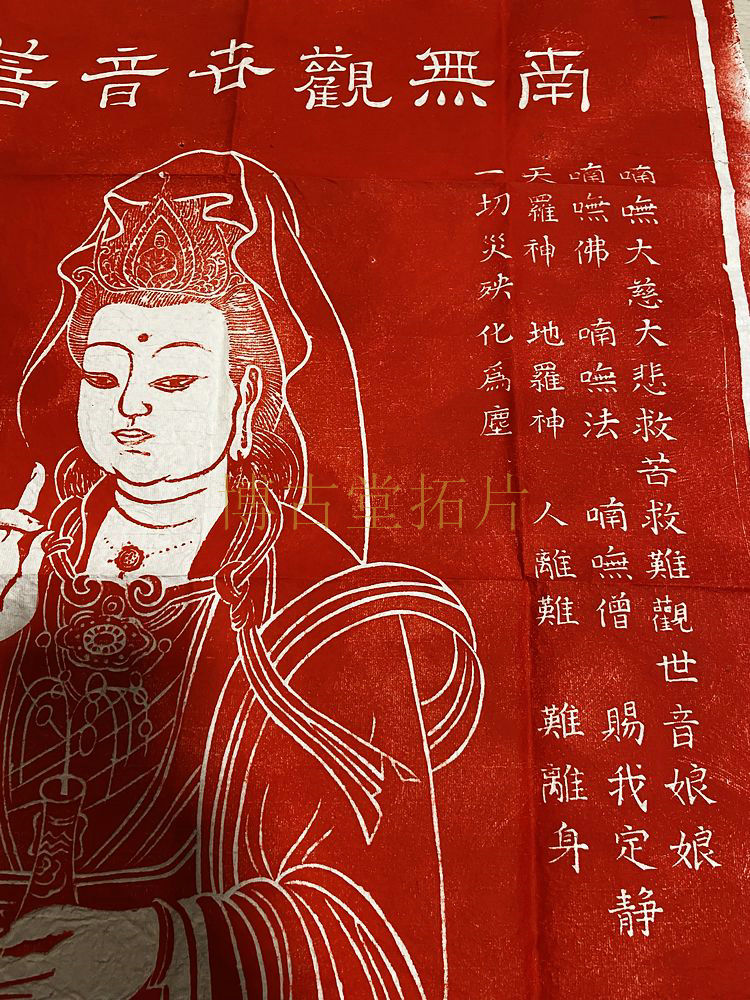 南無觀世音菩
喃嘸大慈大悲救苦救難觀世音娘娘
喃嘸佛 喃嘸法 喃嘸僧 賜我定静
天羅神 地羅神 人離難 難離身
一切災殃化爲塵
博古堂拓片